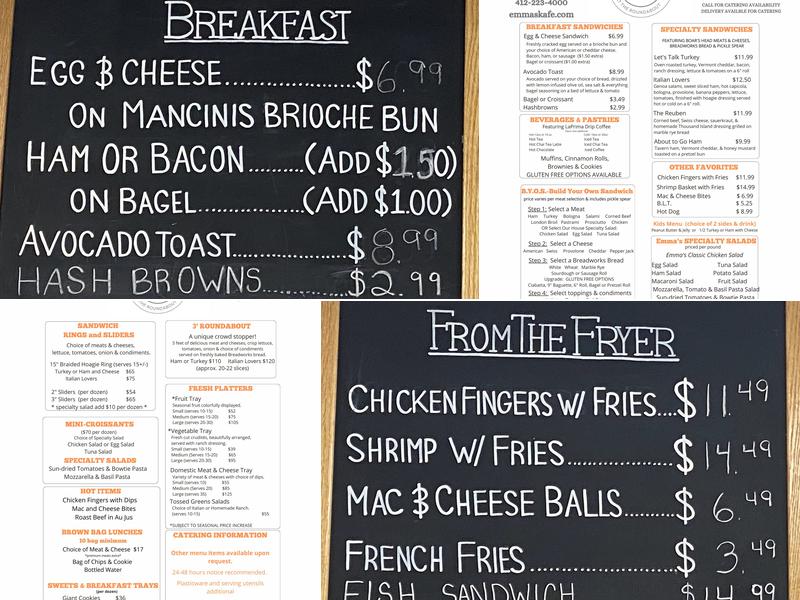 BREAKFAST
EGG & CHEESE..............$6.99
ON MANCINIS BRIOCHE BUN
HAM OR BACON.......(ADD $1.50)
ON BAGEL..............(ADD $1.00)
AVOCADO TOAST............$8.99
HASH BROWNS...........$2.99
412-223-4000
emmaskafe.com
THE ROUNDABOUT
CALL FOR CATERING AVAILABILITY
DELIVERY AVAILABLE FOR CATERING
BREAKFAST SANDWICHES
Egg & Cheese Sandwich $6.99
Freshly cracked egg served on a brioche bun and
your choice of American or cheddar cheese.
Bacon, ham, or sausage ($1.50 extra)
Bagel or croissant ($1.00 extra)
Avocado Toast $8.99
Avocado served on your choice of bread, drizzled
with lemon-infused olive oil, sea salt & everything
bagel seasoning on a bed of lettuce & tomato
Bagel or Croissant $3.49
Hashbrowns $2.99
BEVERAGES & PASTRIES
Featuring LaPrima Drip Coffee
Hot Tea
Hot Chai Tea Latte
Hot Chocolate
Iced Tea
Iced Chai Latte
Iced Coffee
Muffins, Cinnamon Rolls,
Brownies & Cookies
GLUTEN FREE OPTIONS AVAILABLE
B.Y.O.S.-Build Your Own Sandwich
price varies per meat selection & includes pickle spear
Step 1: Select a Meat
Ham Turkey Bologna Salami Corned Beef
London Broil Pastrami Prosciutto Chicken
OR Select Our House Specialty Salad:
Chicken Salad Egg Salad Tuna Salad
Step 2: Select a Cheese
American Swiss Provolone Cheddar Pepper Jack
Step 3: Select a Breadworks Bread
White Wheat Marble Rye
Sourdough or Traditional Wrap
Upgrade: GLUTEN FREE OPTIONS
Ciabatta, 9" Baguette, 6" Roll, Bagel or Pretzel Roll
Step 4: Select toppings & condiments
SPECIALTY SANDWICHES
FEATURING BOAR'S HEAD MEATS & CHEESES,
BREADWORKS BREAD & PICKLE SPEAR
Let's Talk Turkey $11.99
Oven roasted turkey, Vermont cheddar, bacon,
ranch dressing, lettuce & tomatoes on a 6" roll
Italian Lovers $12.50
Genoa salami, sweet sliced ham, hot capicola,
bologna, provolone, banana peppers, lettuce,
tomatoes, finished with hoagie dressing served
hot or cold on a 6" roll.
The Reuben $11.99
Corned beef, Swiss cheese, sauerkraut, &
homemade Thousand Island dressing grilled on
marble rye bread
About to Go Ham $9.99
Tavern ham, Vermont cheddar, & honey mustard
toasted on a pretzel bun
OTHER FAVORITES
Chicken Fingers with Fries $11.99
Shrimp Basket with Fries $14.99
Mac & Cheese Bites $ 6.99
B.L.T. $ 5.25
Hot Dog $ 8.99
Kids Menu (choice of 2 sides & drink)
Peanut Butter & Jelly or 1/2 Turkey or Ham with Cheese
Emma's SPECIALTY SALADS
priced per pound
Emma's Classic Chicken Salad
Egg Salad Tuna Salad
Ham Salad Potato Salad
Macaroni Salad Fruit Salad
Mozzarella, Tomato & Basil Pasta Salad
Sun-dried Tomatoes & Bowtie Pasta
THE ROUNDABOUT
SANDWICH
RINGS and SLIDERS
Choice of meats & cheeses,
lettuce, tomatoes, onion & condiments.
15" Braided Hoagie Ring (serves 15+/-)
Turkey or Ham and Cheese $65
Italian Lovers $75
2" Sliders (per dozen) $54
3" Sliders (per dozen) $65
* specialty salad add $10 per dozen *
MINI-CROISSANTS
($70 per dozen)
Choice of Specialty Salad
Chicken Salad or Egg Salad
Tuna Salad
SPECIALTY SALADS
Sun-dried Tomatoes & Bowtie Pasta
Mozzarella & Basil Pasta
HOT ITEMS
Chicken Fingers with Dips
Mac and Cheese Bites
Roast Beef in Au Jus
BROWN BAG LUNCHES
10 bag minimum
Choice of Meat & Cheese $17
*premium meats extra*
Bag of Chips & Cookie
Bottled Water
SWEETS & BREAKFAST TRAYS
(per dozen)
Giant Cookies $36
3' ROUNDABOUT
A unique crowd stopper!
3 feet of delicious meat and cheeses, crisp lettuce,
tomatoes, onion & choice of condiments
served on freshly baked Breadworks bread.
Ham or Turkey $110 Italian Lovers $120
(approx. 20-22 slices)
FRESH PLATTERS
*Fruit Tray
Seasonal fruit colorfully displayed.
Small (serves 10-15) $52
Medium (serves 15-20) $75
Large (serves 20-30) $105
*Vegetable Tray
Fresh cut crudités, beautifully arranged,
served with ranch dressing.
Small (serves 10-15) $39
Medium (serves 15-20) $65
Large (serves 20-30) $95
Domestic Meat & Cheese Tray
Variety of meats & cheeses with choice of dips.
Small (serves 10) $55
Medium (Serves 20) $85
Large (serves 35) $125
Tossed Greens Salads
Choice of Italian or Homemade Ranch.
(serves 10-15) $55
*SUBJECT TO SEASONAL PRICE INCREASE
CATERING INFORMATION
Other menu items available upon
request.
24-48 hours notice recommended.
Plasticware and serving utensils
additional
FROM THE FRYER
CHICKEN FINGERS W/ FRIES....$11.49
SHRIMP W/ FRIES..............$14.49
MAC & CHEESE BALLS.......$6.49
FRENCH FRIES...............$3.49
FISH SANDWICH $14.99